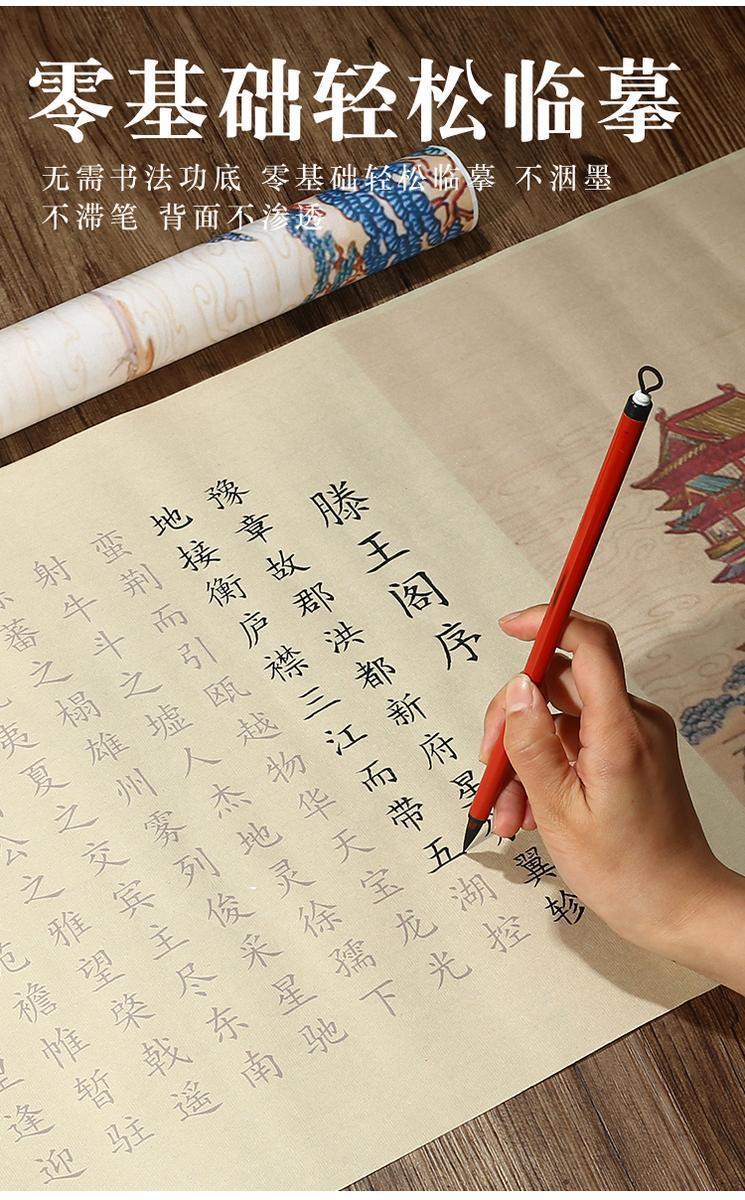 零基础轻松临摹
无需书法功底 零基础轻松临摹 不洇墨
不滞笔 背面不渗透
滕王阁序
豫章故郡洪都新府星翼轸
地接衡庐襟三江而带五湖控
蛮荆而引瓯越物华天宝龙光
射牛斗之墟人杰地灵徐孺下
蕃之榻雄州雾列俊采星驰
夷夏之交宾主尽东南
公之雅望棨戟遥
范襜帷暂驻
逢迎